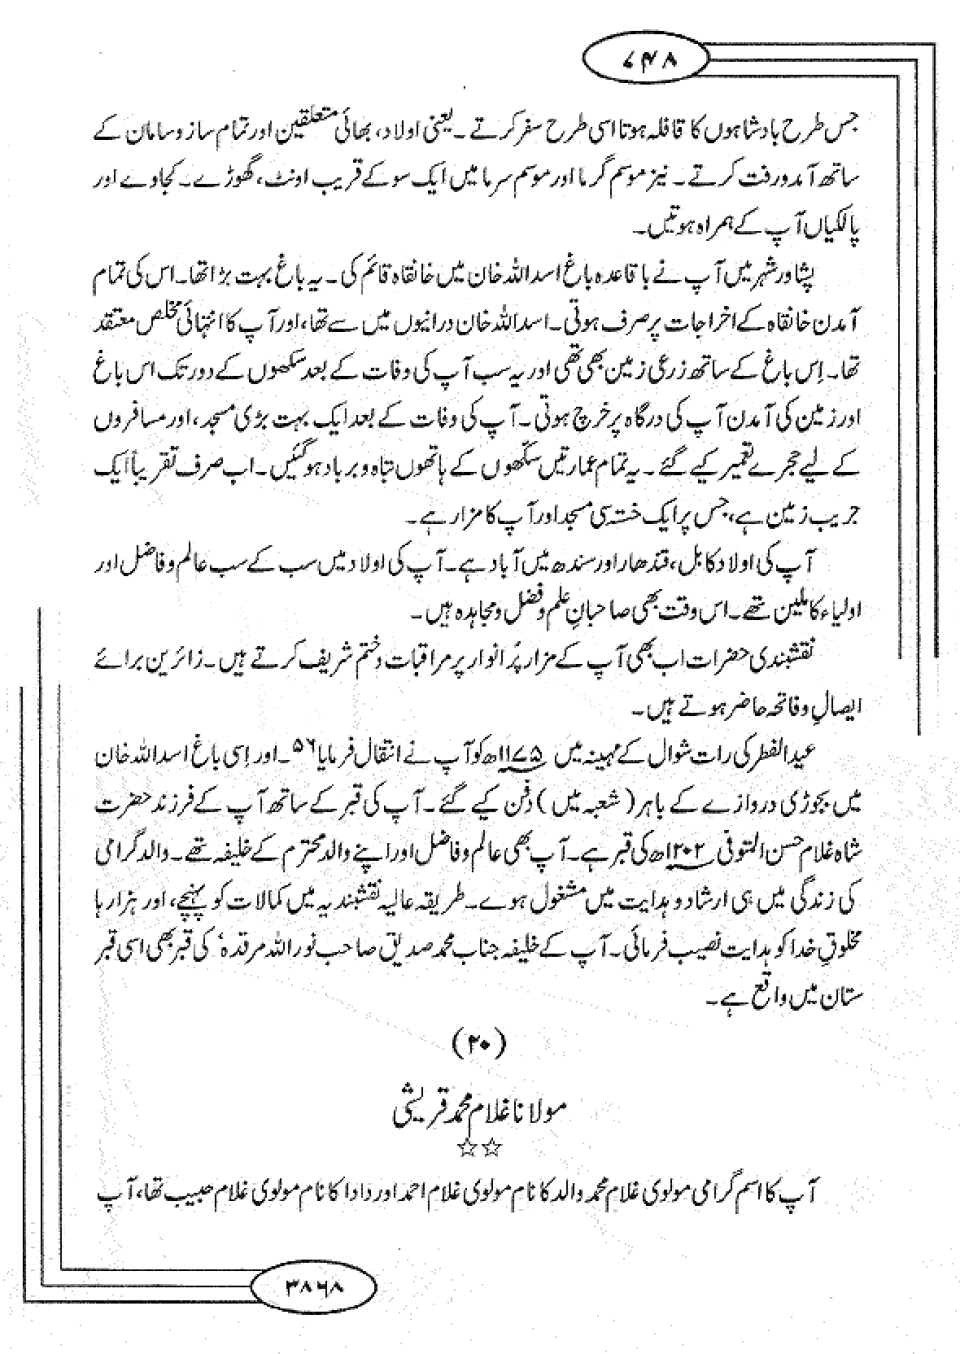 ۷۴۸
جس طرح بادشاہوں کا قافلہ ہوتا اسی طرح سفر کرتے۔ یعنی اولاد، بھائی متعلقین اور تمام ساز و سامان کے
ساتھ آمدورفت کرتے۔ نیز موسم گرما اور موسم سرما میں ایک سو کے قریب اونٹ، گھوڑے۔ کجاوے اور
پالکیاں آپ کے ہمراہ ہوتیں۔
پشاور شہر میں آپ نے باقاعدہ باغ اسد اللہ خان میں خانقاہ قائم کی۔ یہ باغ بہت بڑا تھا۔ اس کی تمام
آمدن خانقاہ کے اخراجات پر صرف ہوتی۔ اسد اللہ خان درانیوں میں سے تھا، اور آپ کا انتہائی مخلص معتقد
تھا۔ اِس باغ کے ساتھ زرعی زمین بھی تھی اور یہ سب آپ کی وفات کے بعد سکھوں کے دور تک اس باغ
اور زمین کی آمدن آپ کی درگاہ پر خرچ ہوتی۔ آپ کی وفات کے بعد ایک بہت بڑی مسجد، اور مسافروں
کے لیے حجرے تعمیر کیے گئے۔ یہ تمام عمارتیں سکھوں کے ہاتھوں تباہ و برباد ہوگئیں۔ اب صرف تقریباً ایک
جریب زمین ہے، جس پر ایک خستہ سی مسجد اور آپ کا مزار ہے۔
آپ کی اولاد کابل، قندھار اور سندھ میں آباد ہے۔ آپ کی اولاد میں سب کے سب عالم و فاضل اور
اولیاء کاملین تھے۔ اس وقت بھی صاحبانِ علم و فضل و مجاہدہ ہیں۔
نقشبندی حضرات اب بھی آپ کے مزار پُر انوار پر مراقبات و ختم شریف کرتے ہیں۔ زائرین برائے
ایصالِ و فاتحہ حاضر ہوتے ہیں۔
عید الفطر کی رات شوال کے مہینہ میں ۱۱۷۵ھ کو آپ نے انتقال فرمایا ۵۶۔ اور اِسی باغ اسد اللہ خان
میں بجوڑی دروازے کے باہر (شعبہ میں) دفن کیے گئے۔ آپ کی قبر کے ساتھ آپ کے فرزند حضرت
شاہ غلام حسن المتوفی ۱۲۰۲ھ کی قبر ہے۔ آپ بھی عالم و فاضل اور اپنے والد محترم کے خلیفہ تھے۔ والد گرامی
کی زندگی میں ہی ارشاد و ہدایت میں مشغول ہوے۔ طریقہ عالیہ نقشبندیہ میں کمالات کو پہنچے، اور ہزار ہا
مخلوقِ خدا کو ہدایت نصیب فرمائی۔ آپ کے خلیفہ جناب محمد صدیق صاحب نور اللہ مرقدہٗ کی قبر بھی اسی قبر
ستان میں واقع ہے۔
(۲۰)
مولانا غلام محمد قریشی
☆☆
آپ کا اسم گرامی مولوی غلام محمد والد کا نام مولوی غلام احمد اور دادا کا نام مولوی غلام حبیب تھا، آپ
۳۸۶۸